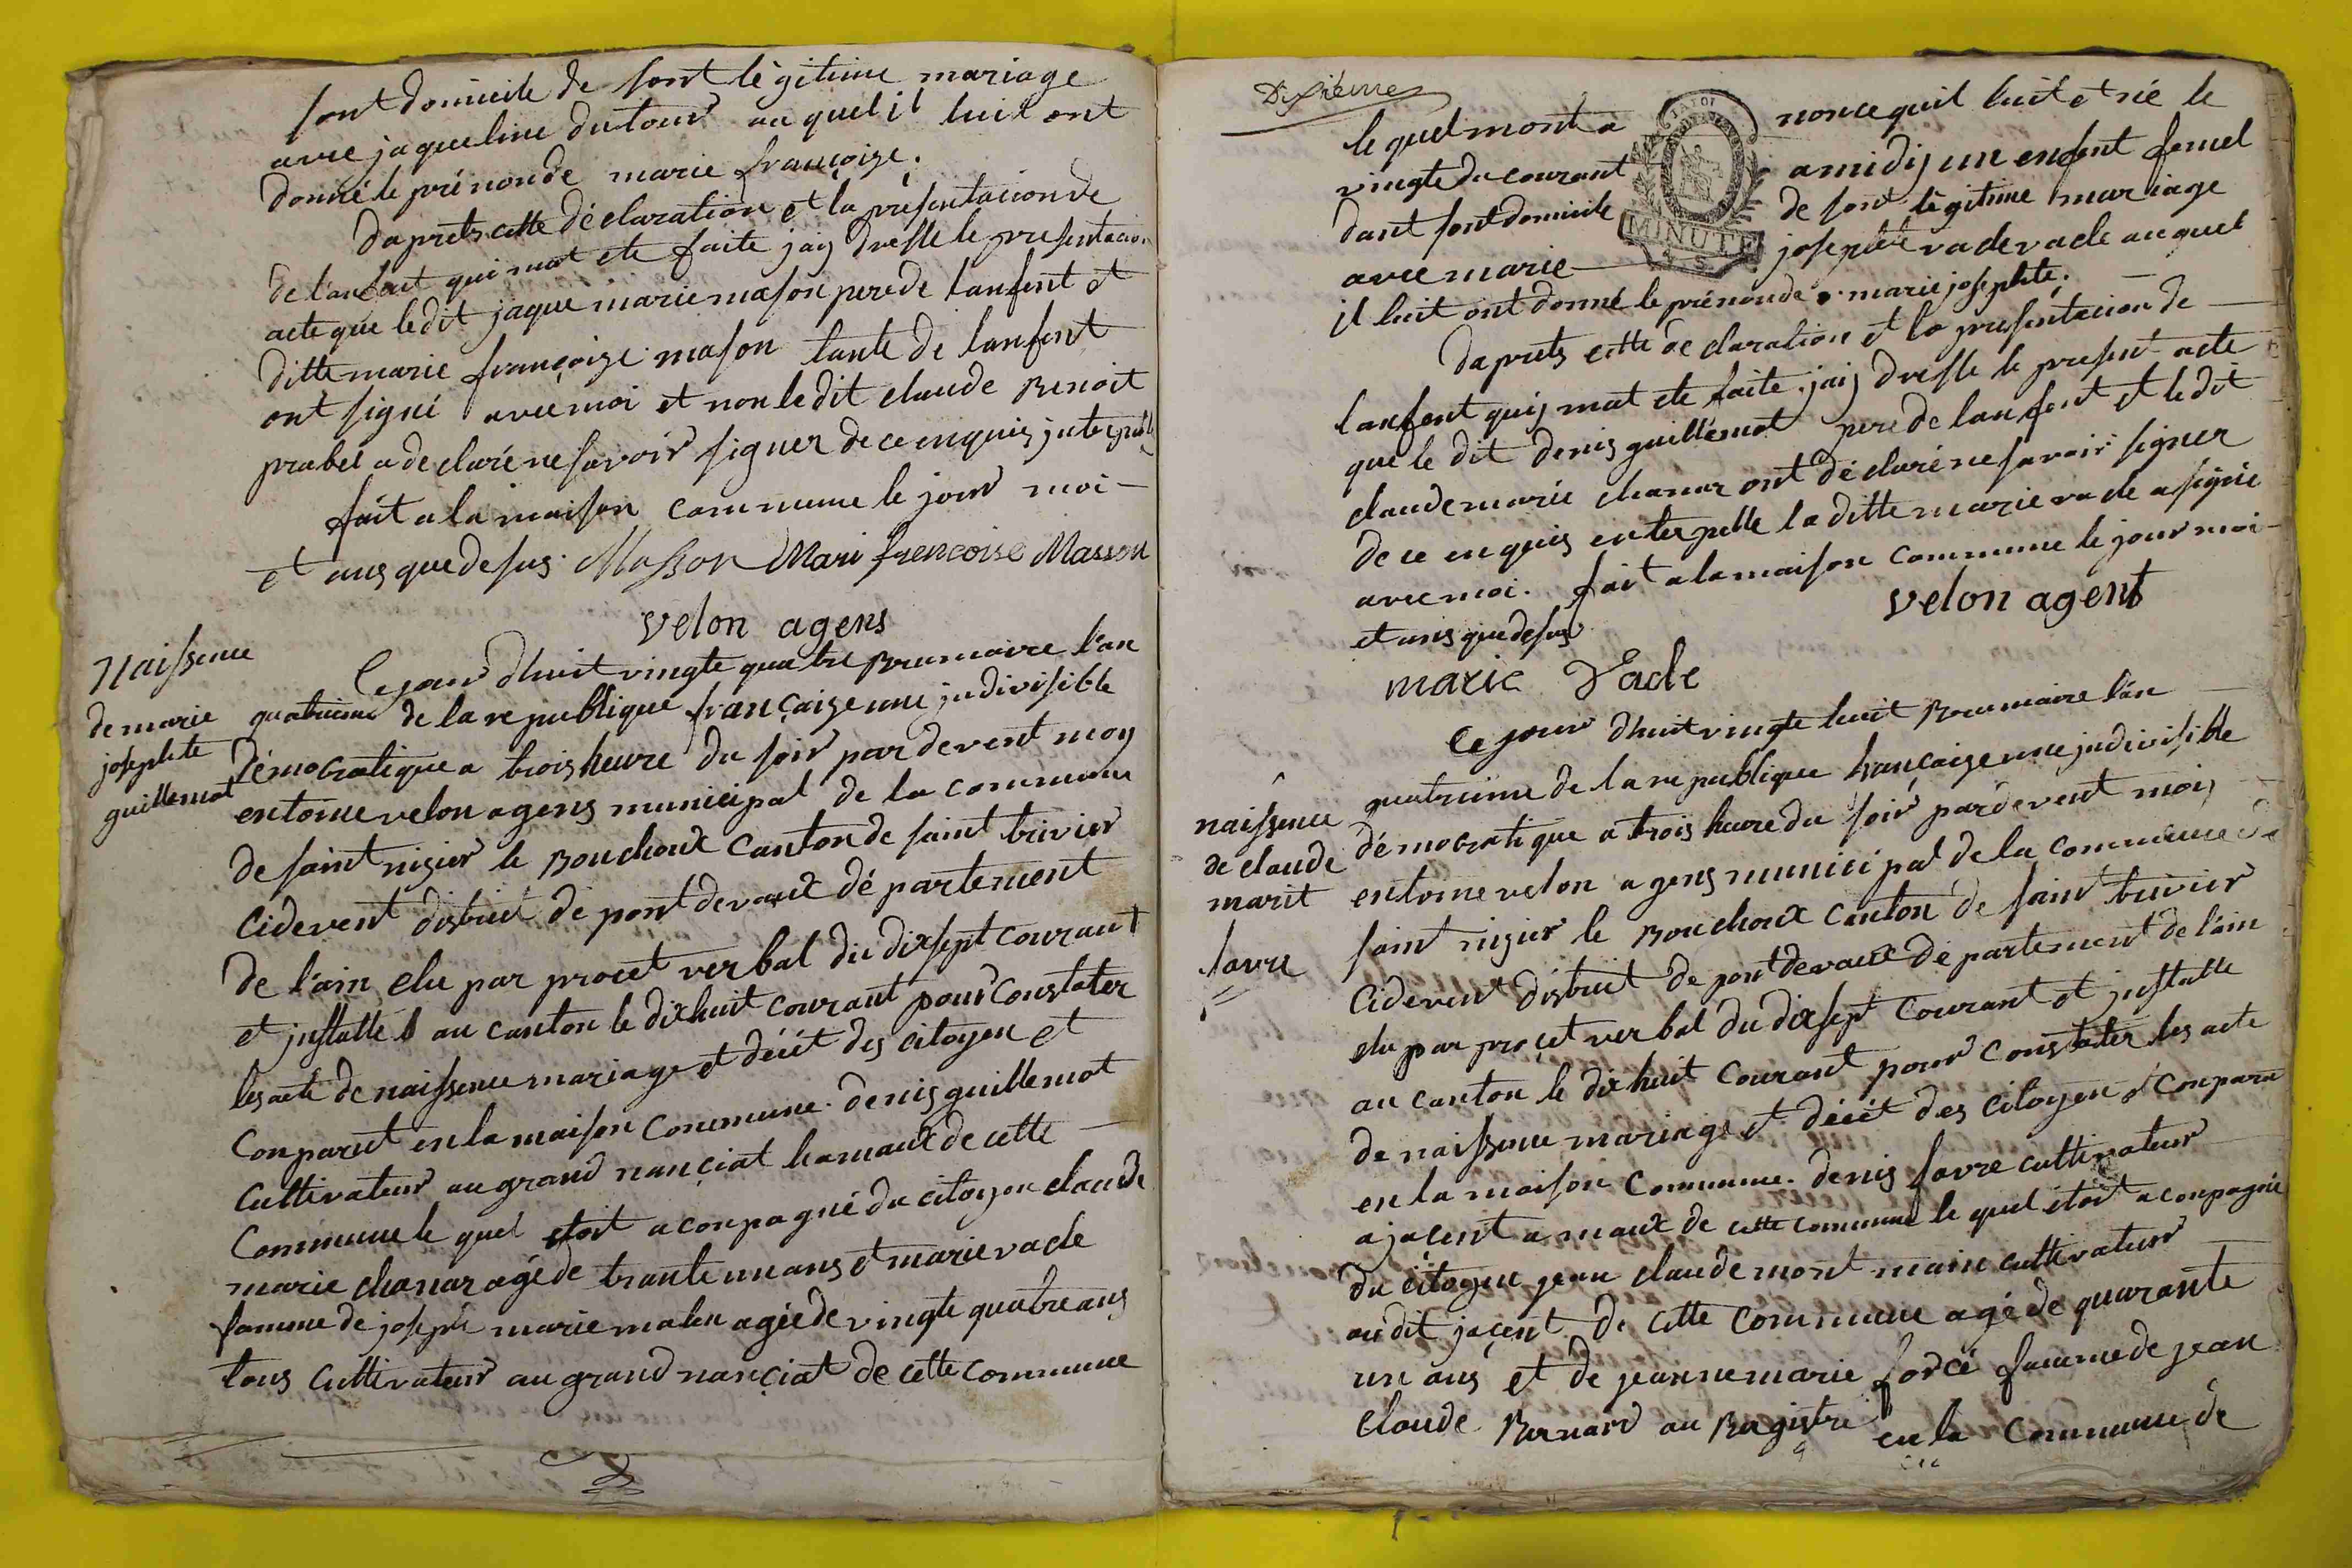 sont domicile de sont lègitime mariage
avec jaqueline dutour au quel il luit ont
donné le prénonde marie françoise.
daprets cette déclaration et la présentacion de
de lanfant qui mat ete faite jaij dresse le presentacion
acte que le dit jaque marie mason perede lanfent et
ditte marie françoise mason tante de lanfent
ont signé avec moi et non le dit claude Benoit
prabel a declaré ne savoir signer de ce enquis
fait a la maison commune le jour moi
et ans que desus. Masson Mari frencoise Masson
velon agens
Naissence
de marie
josephte
guillemot
Ce jour dhuit vingte quatre Brumaire l'an
quatrieme de la republique française une jndivisible
démocratique a trois heure du soir par devent moy
entoine velon agens municipal de la commune
de saint nisier le Bouchoux Canton de saint trivier
Cidevent distrit de pont devaux dé partement
de l'ain elu par procet verbal du dixsept courant
et jnstallé au canton le dixhuit courant pour constater
les acte de naissence mariage et décét des citoyen et
Conparut en la maison Commune. denis guillemot
Cultivateur au grand nançiat hamaux de cette
Commune le quel etoit aconpagné du citoyen claude
marie chanar agé de trante un ans et marie vade
famme de joseph marie agéé de vingte quatre ans
tous Cultivateur au grand nançiat de cette commune
le quel mont a nonce quil luit et né le
vingte du courant a midij un enfent femel
dant sont domicile de sont lègitime mariage
avec marie josephte vade vade au quel
il luit ont donné le prénonde marie josephte.
daprets cette de claration et la presentacion de
lanfent quij mat ete faite jaij dresse le present acte
que le dit denis guillémot perede lanfent et le dit
claude marie chanar ont déclaré ne savoir signer
de ce enquis enterpelle la ditte marie vade a signé
avec moi. fait a la maison commune le jour moi
et ans que desus
velon agent
marie Vade
MINUTE
naissence
de claude
marit
favre
Ce jour dhuit vingte huit Brumaire l'an
quatrieme de la republique française une jndivisible
démocratique a trois heure du soir pardevent moij
entoine velon agens municipal de la commune de
saint nisier le Bouchoux Canton de saint trivier
Cidevent distrit de pont devaux dé partement de l'ain
elu par proçet verbal du dixsept courant et jnstalle
au canton le dixhuit courant pour constater les acte
de naissence mariage et décét des citoyen et conparu
en la maison Commune. denis favre cultivateur
a jaçent a maux de cette commune le quel étoit aconpagné
du çitoyen jean claude mont main cultivateur
au dit jaçent de cette commune agé de quarante
un ans et de jeanne marie forcé famme de jean
claude Bernard au Bagistre en la Commune de